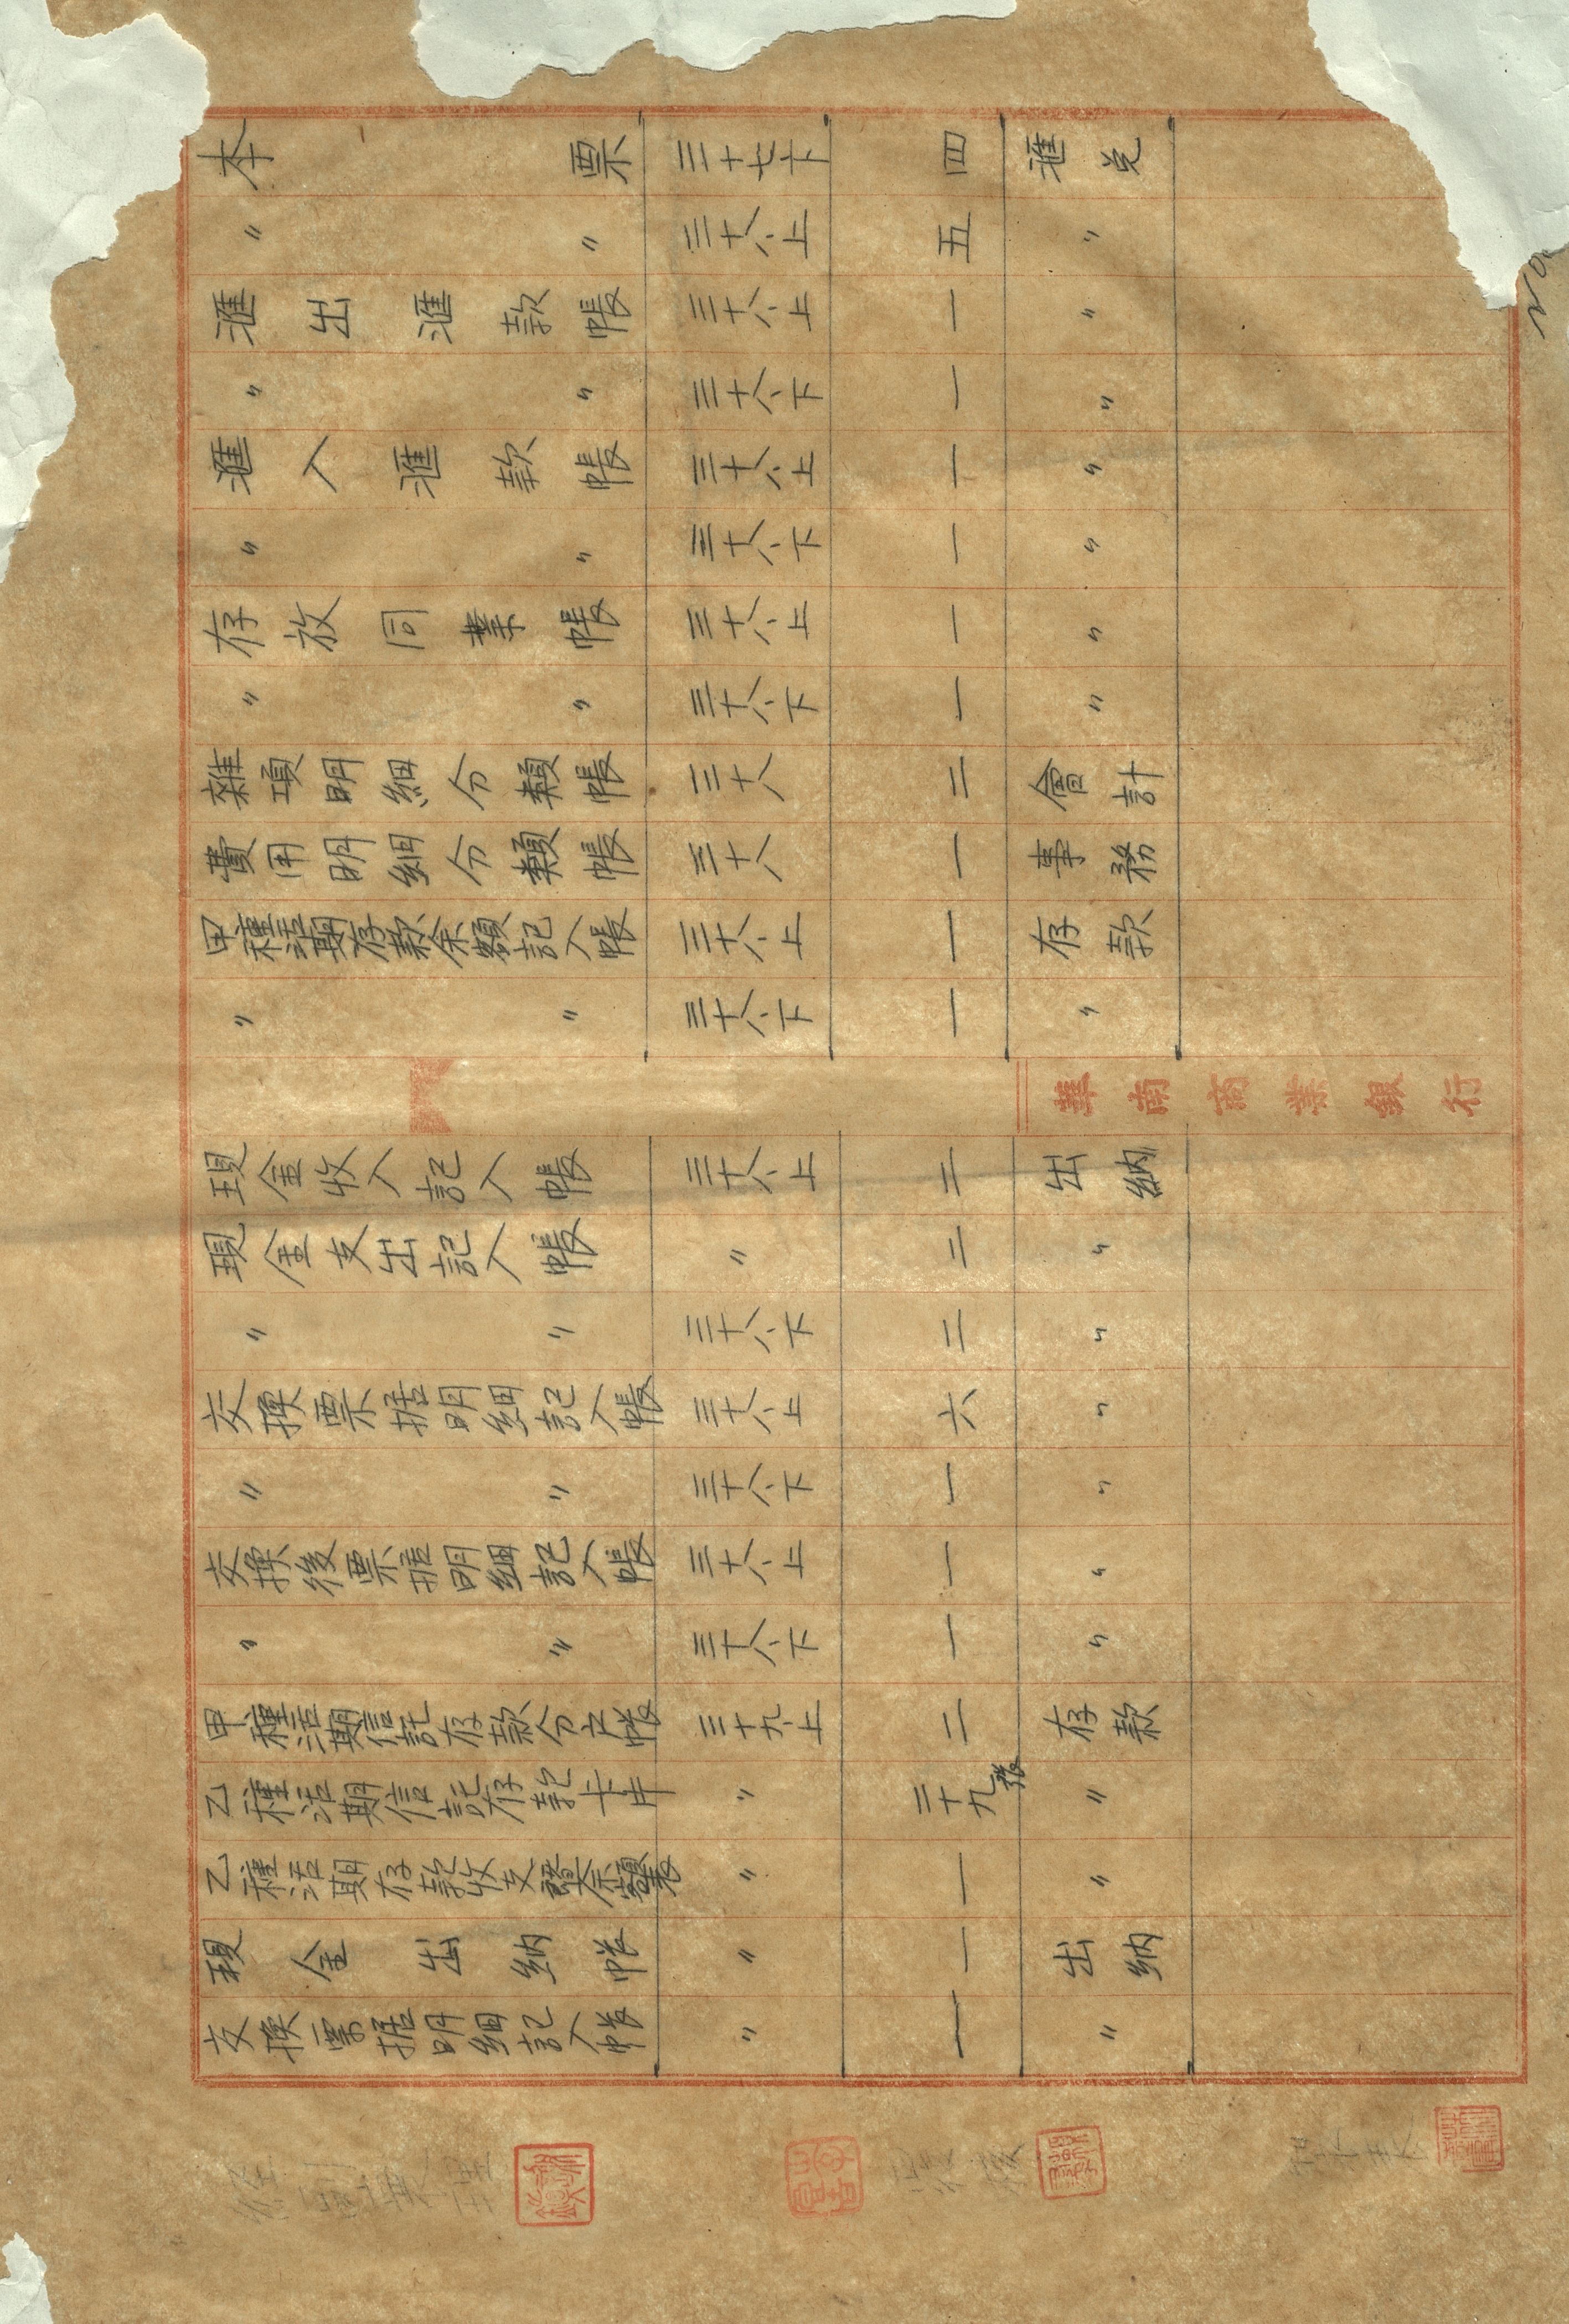 本票 三十七下 四 匯兌
〃 〃 三十八上 五 〃
匯出匯款帳 三十八上 一 〃
〃 〃 三十八下 一 〃
匯入匯款帳 三十八上 一 〃
〃 〃 三十八下 一 〃
存放同業帳 三十八上 一 〃
〃 〃 三十八下 一 〃
雜項明細分類帳 三十八 二 會計
費用明細分類帳 三十八 一 事務
甲種活期存款余額記入帳 三十八上 一 存款
〃 〃 三十八下 一 〃
華南商業銀行
現金收入記入帳 三十八上 二 出納
現金支出記入帳 〃 二 〃
〃 〃 三十八下 二 〃
交換票据明細記入帳 三十八上 六 〃
〃 〃 三十八下 一 〃
交換後票据明細記入帳 三十八上 一 〃
〃 〃 三十八下 一 〃
甲種活期信託存款分户帳 三十九上 二 存款
乙種活期信託存款卡片 〃 二十九張 〃
乙種活期存款收支余額表 〃 一 〃
現金出納帐 〃 一 出納
交換票据明細記入帐 〃 一 〃